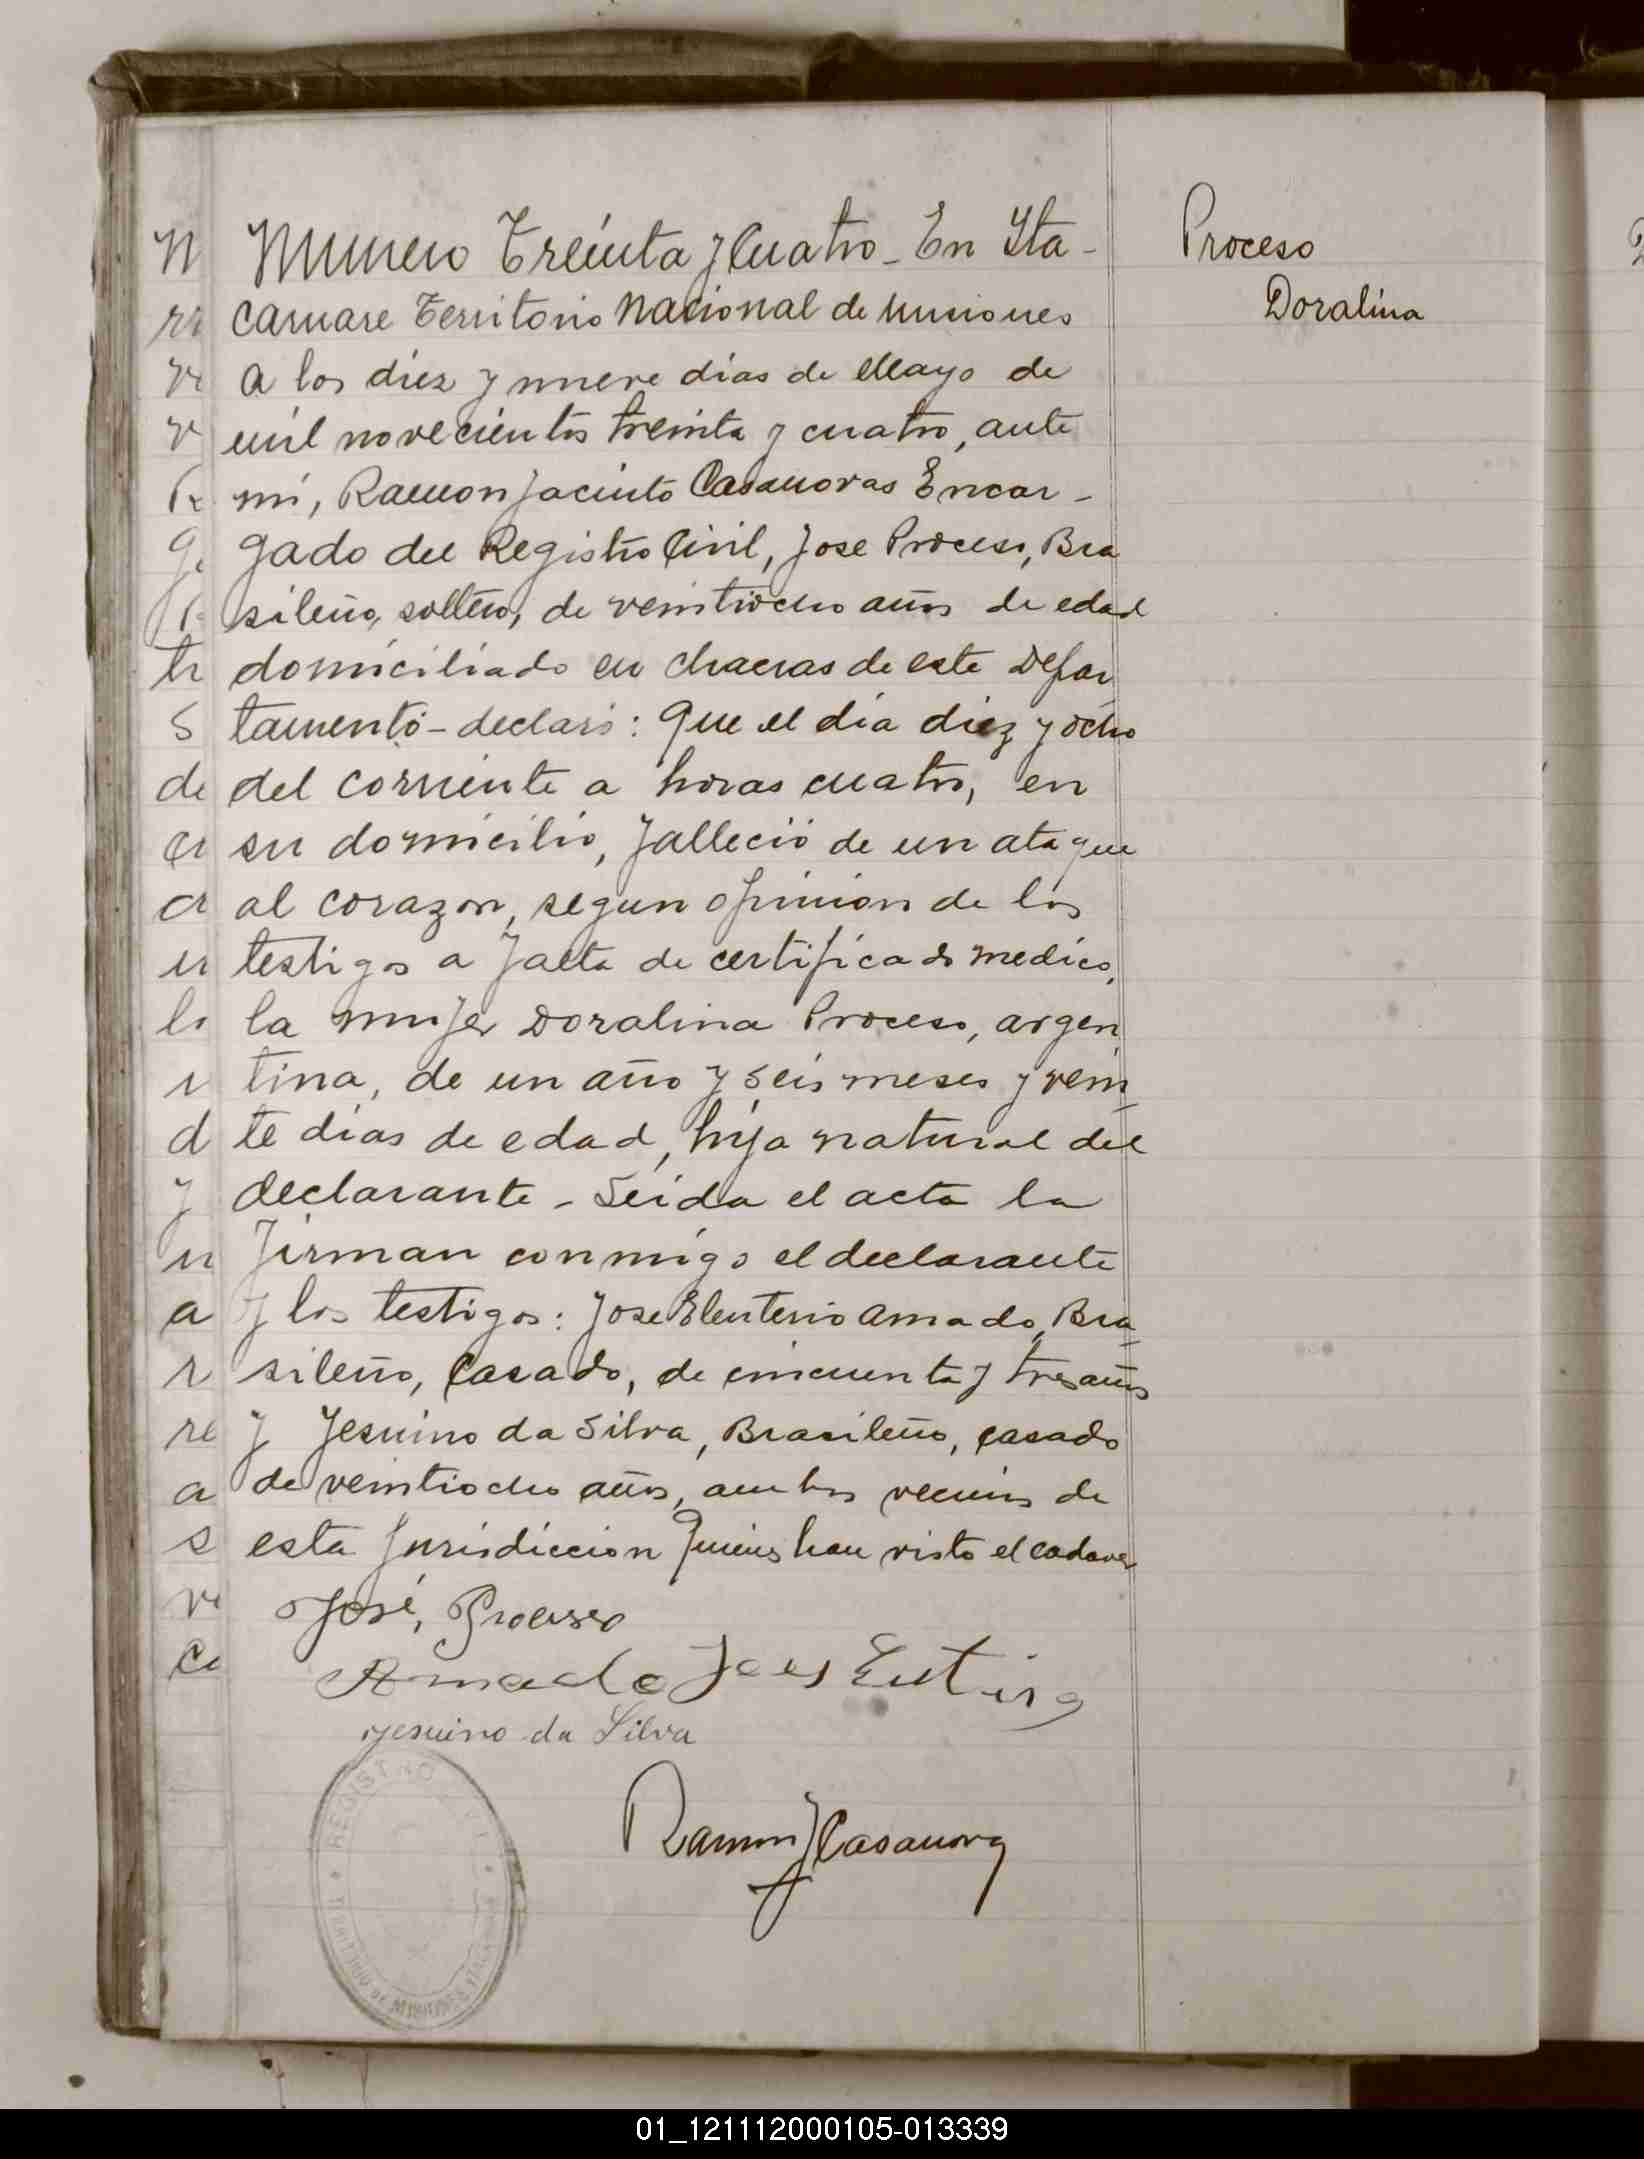 Proceso
Doralina
Numero Treinta y Cuatro - En Ita-
caruare Territorio Nacional de Misiones
a los diez y nueve dias de Mayo de
mil novecientos treinta y cuatro, ante
mi, Ramon Jacinto Casanovas Encar-
gado del Registro Civil, Jose Proceso, Bra
sileño, soltero, de veintiocho años de edad
domiciliado en chacras de este Depar
tamento - declaró: Que el dia diez y ocho
del corriente a horas cuatro, en
su domicilio, falleció de un ataque
al corazon, segun opinion de los
testigos a falta de certificado medico,
la mujer Doralina Proceso, argen
tina, de un año y seis meses y vein-
te dias de edad, hija natural del
declarante - Leida el acta la
firman conmigo el declarante
y los testigos: Jose Eleuterio Amado, Bra-
sileño, Casado, de cincuenta y tres años
y Jesuino da Silva, Brasileño, casado
de veintiocho años, ambos vecinos de
esta Jurisdiccion Quienes han visto el cadaver
José, Proceso
Amado
Jesuino da Silva
Ramon J Casanova
REGISTRO
TERRITORIO DE MISIONES
N
de
a
re
a
s
01_121112000105-013339